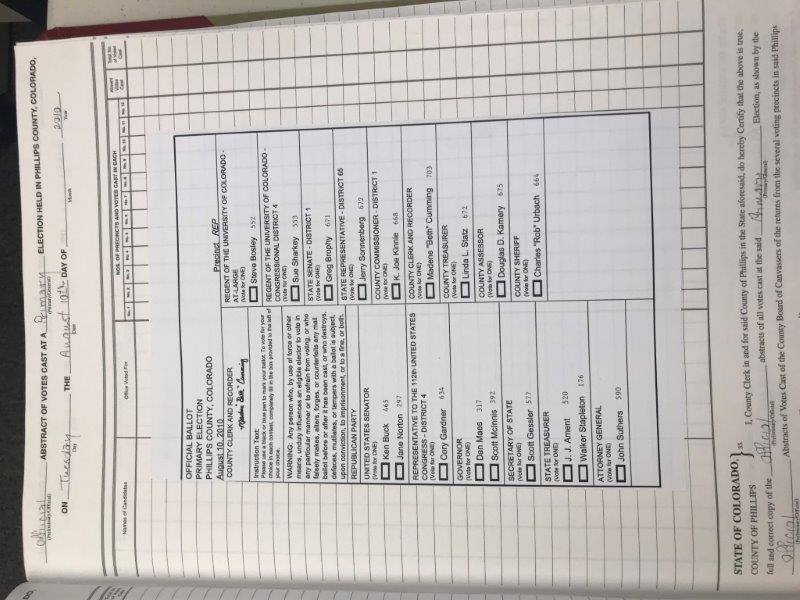 Official ABSTRACT OF VOTES CAST AT A Primary ELECTION HELD IN PHILLIPS COUNTY, COLORADO,
(Preliminary/Official) (Primary/General)
ON Tuesday THE August 10th DAY OF 2010
Day Date Month Year
NOS. OF PRECINCTS AND VOTES CAST IN EACH
Names of Candidates Office Voted For No. 1 No. 2 No. 3 No. 4 No. 5 No. 6 No. 7 No. 8 No. 9 No. 10 No. 11 No. 12 Absent Votes Cast Total No. of Votes Cast
OFFICIAL BALLOT
PRIMARY ELECTION
PHILLIPS COUNTY, COLORADO
August 10, 2010
Precinct REP
COUNTY CLERK AND RECORDER
Madene "Beth" Cumming
Instruction Text:
Please use a black or blue pen to mark your ballot. To vote for your
choice in each contest, completely fill in the box provided to the left of
your choice.
WARNING: Any person who, by use of force or other
means, unduly influences an eligible elector to vote in
any particular manner or to refrain from voting, or who
falsely makes, alters, forges, or counterfeits any mail
ballot before or after it has been cast, or who destroys,
defaces, mutilates, or tampers with a ballot is subject,
upon conviction, to imprisonment, or to a fine, or both.
REPUBLICAN PARTY
UNITED STATES SENATOR
(Vote for ONE)
Ken Buck 465
Jane Norton 297
REPRESENTATIVE TO THE 112th UNITED STATES
CONGRESS - DISTRICT 4
(Vote for ONE)
Cory Gardner 634
GOVERNOR
(Vote for ONE)
Dan Maes 317
Scott McInnis 392
SECRETARY OF STATE
(Vote for ONE)
Scott Gessler 577
STATE TREASURER
(Vote for ONE)
J. J. Ament 520
Walker Stapleton 176
ATTORNEY GENERAL
(Vote for ONE)
John Suthers 590
REGENT OF THE UNIVERSITY OF COLORADO -
AT-LARGE
(Vote for ONE)
Steve Bosley 552
REGENT OF THE UNIVERSITY OF COLORADO -
CONGRESSIONAL DISTRICT 4
(Vote for ONE)
Sue Sharkey 553
STATE SENATE - DISTRICT 1
(Vote for ONE)
Greg Brophy 671
STATE REPRESENTATIVE - DISTRICT 65
(Vote for ONE)
Jerry Sonnenberg 672
COUNTY COMMISSIONER - DISTRICT 1
(Vote for ONE)
K. Joe Kinnie 668
COUNTY CLERK AND RECORDER
(Vote for ONE)
Madene "Beth" Cumming 703
COUNTY TREASURER
(Vote for ONE)
Linda L. Statz 672
COUNTY ASSESSOR
(Vote for ONE)
Douglas D. Kamery 675
COUNTY SHERIFF
(Vote for ONE)
Charles "Rob" Urbach 664
STATE OF COLORADO, } ss I, County Clerk in and for said County of Phillips in the State aforesaid, do hereby Certify that the above is true,
COUNTY OF PHILLIPS
full and correct copy of the Official abstracts of all votes cast at the said Primary Election, as shown by the
(Preliminary/Official) (Primary/General)
Official Abstracts of Votes Cast of the County Board of Canvassers of the returns from the several voting precincts in said Phillips
(Preliminary/Official)